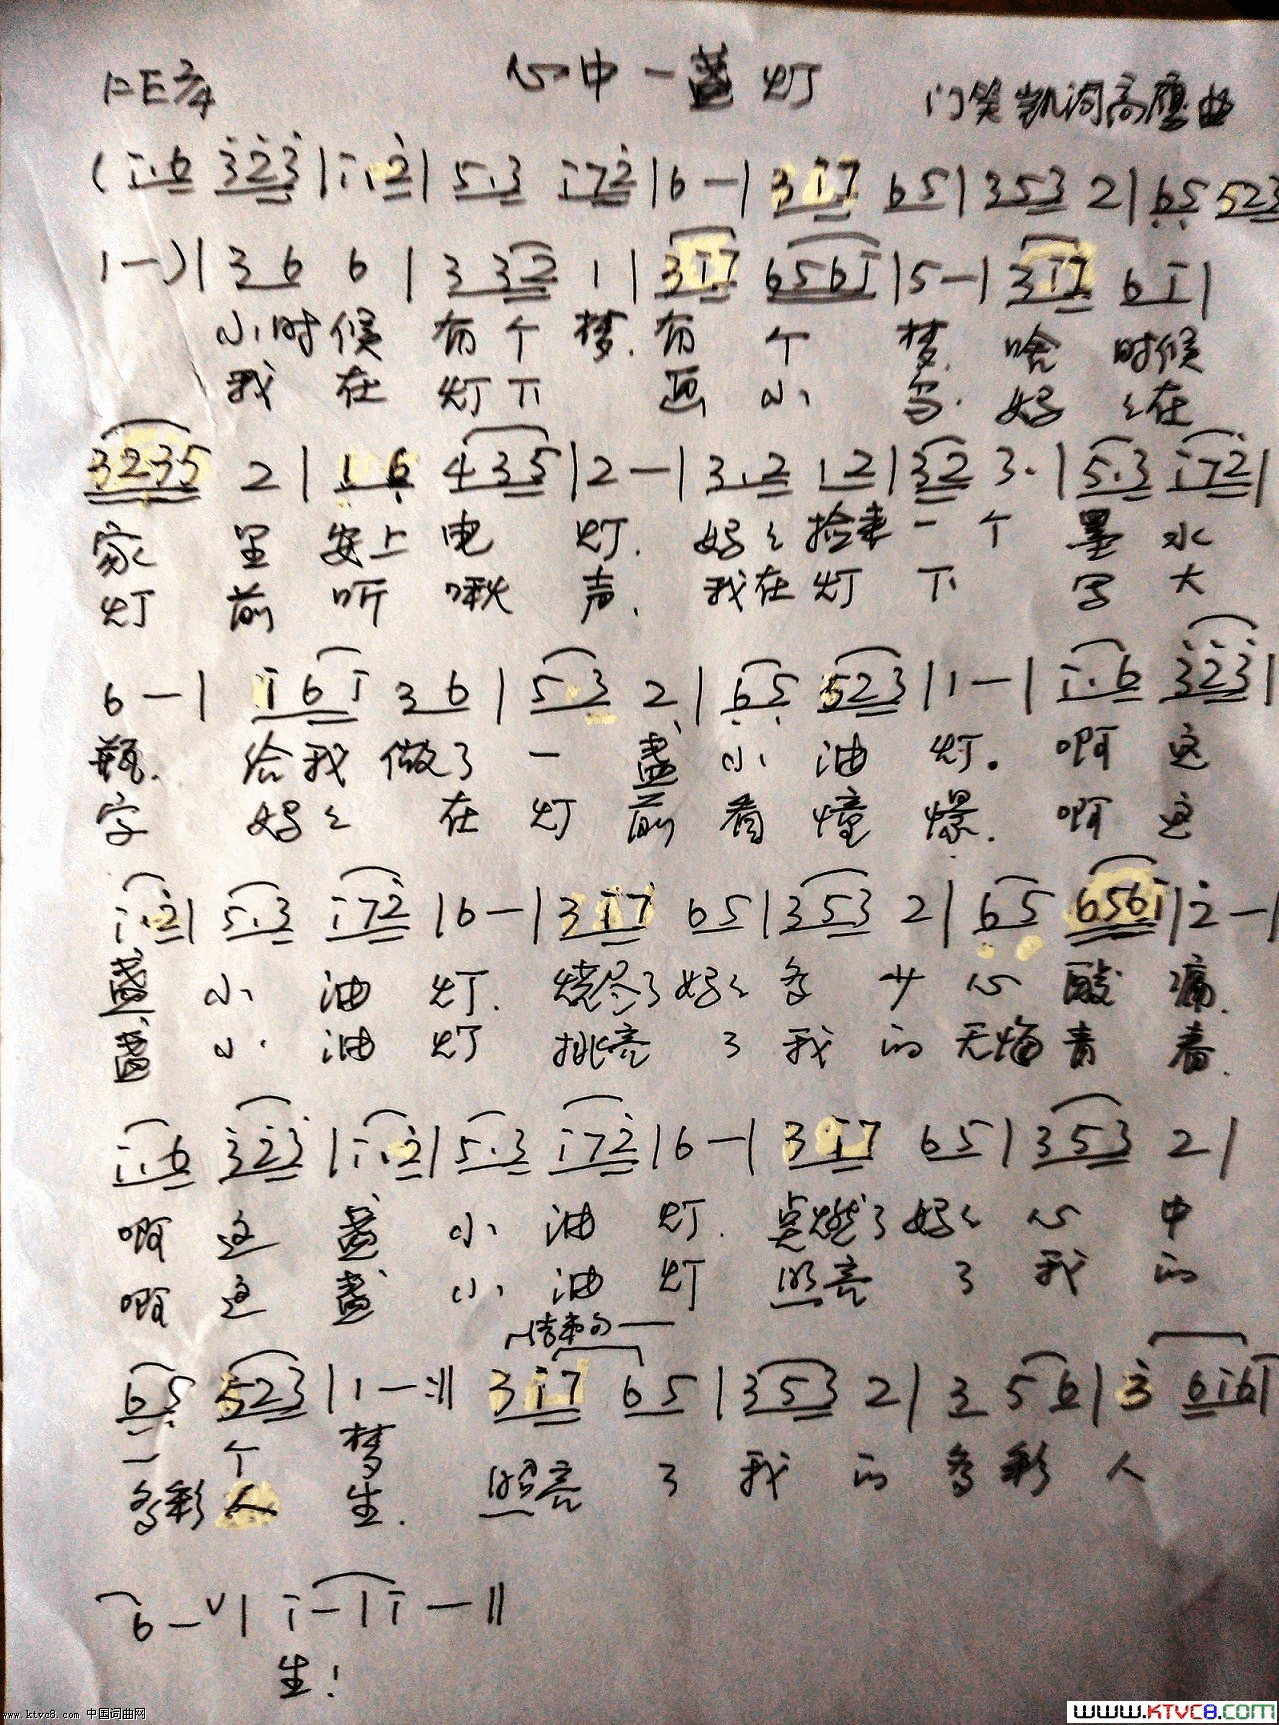 1=E 2/4 心中一盏灯 门笑凯词高鹰曲
(i.6 323|i.2|5.3 i72|6-|3i7 65|353 2|65 523
1-)|36 6|3 32 1|3i7 656i|5-|3i7 6i|
小时候 有个梦.有个梦.啥时候
我在灯下画小鸟.妈々在
3235 2|1 6 435|2-|3.2 12|32 3.|5.3 i72|
家里安上电灯.妈々捡来一个墨水
灯前听啾声.我在灯下写大
6-|i6i 36|5.3 2|65 523|1-|i.6 323|
瓶.给我做了一盏小油灯.啊这
字 妈々在灯前看 .啊这
i.2|5.3 i72|6-|3i7 65|353 2|65 656i|2-|
盏小油灯.烧尽了妈々多少心酸痛.
盏小油灯挑亮了我的无悔青春.
i.6 323|i.2|5.3 i72|6-|3i7 65|353 2|
啊这盏小油灯.点燃了妈々心中
啊这盏小油灯照亮了我的
结束句
65 523|1-:‖ 3i7 65|353 2|3 56|3 6i6|
一个梦
多彩人生.照亮了我的多彩人
6-∨|i-|i-‖
生!
www.ktvc8.com 中国词曲网
WWW.KTVC8.COM